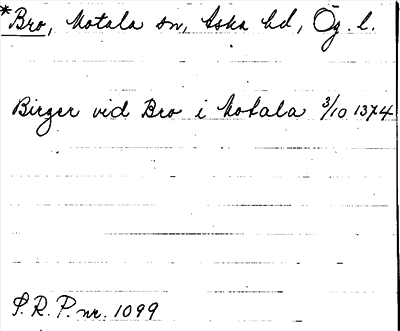 *Bro, Motala sn, Aska hd, Ög. l.
Birger vid Bro i Motala 3/10 1374
S.R.P. nr. 1099